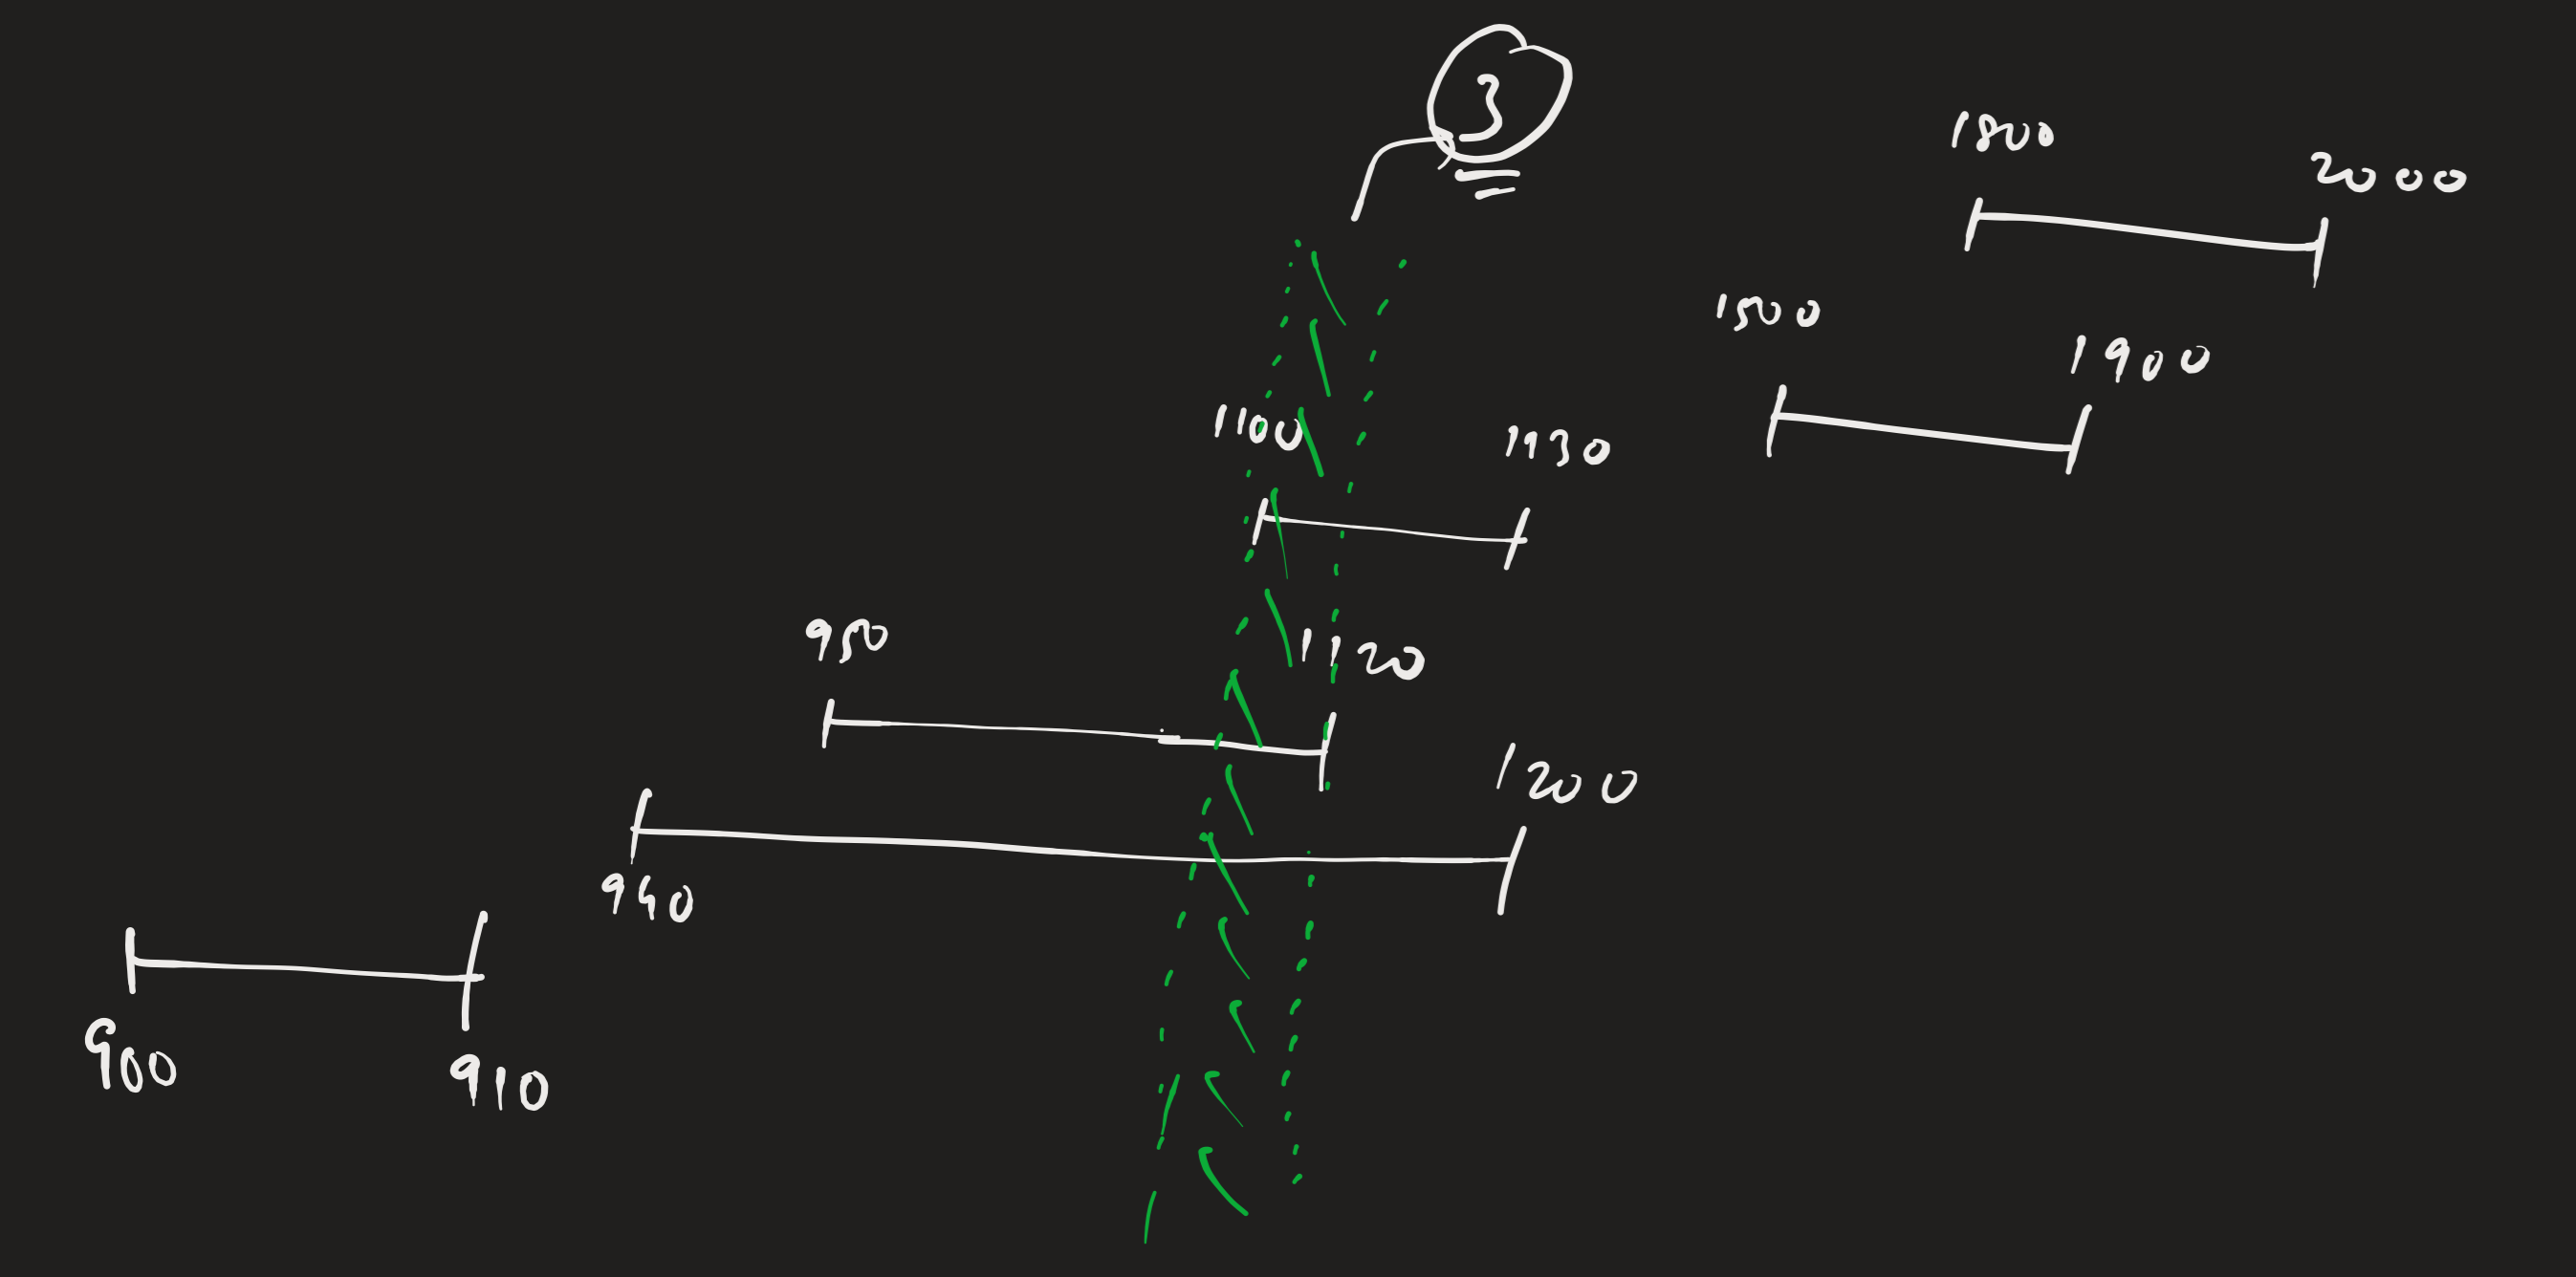 3
1800
2000
1500
1900
1100
1130
950
1120
1200
940
900
910